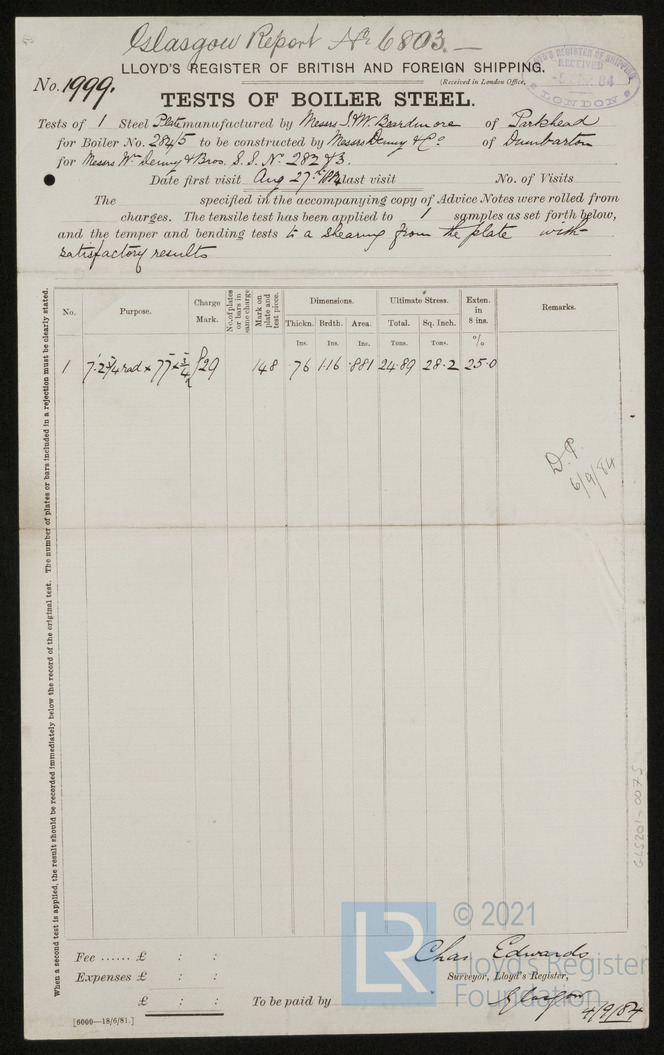 Glasgow Report No 6803.—
LLOYD'S REGISTER OF BRITISH AND FOREIGN SHIPPING.
No. 1999.
(Received in London Office,
LLOYD'S REGISTER OF SHIPPING
RECEIVED
84
LONDON
TESTS OF BOILER STEEL.
Tests of 1 Steel Plate manufactured by Messrs J. & W Beardmore of Parkhead
for Boiler No. 284/5 to be constructed by Messrs Denny & Co of Dumbarton
for Messrs Wm Denny & Bros. S.S. No 282 & 3.
Date first visit Aug 27th last visit No. of Visits
The specified in the accompanying copy of Advice Notes were rolled from
charges. The tensile test has been applied to 1 samples as set forth below,
and the temper and bending tests to a shearing from the plate with
satisfactory results
No. Purpose. Charge Mark. No. of plates or bars in same charge Mark on plate and test piece. Dimensions. Ultimate Stress. Exten. in 8 ins. Remarks.
Thickn. Brdth. Area. Total. Sq. Inch.
Ins. Ins. Ins. Tons. Tons. %
1 7'·2 3/4 rad × 77 × 3/4 P29 148 ·76 1·16 ·881 24·89 28·2 25·0
D.P.
6/9/84
When a second test is applied, the result should be recorded immediately below the record of the original test. The number of plates or bars included in a rejection must be clearly stated.
GLS201-0075
Fee ...... £ : :
Expenses £ : :
£ : :
[6000—18/6/81.]
To be paid by
Chas Edwards
Surveyor, Lloyd's Register,
Glasgow
4/9/84
LR
© 2021
Lloyd's Register
Foundation